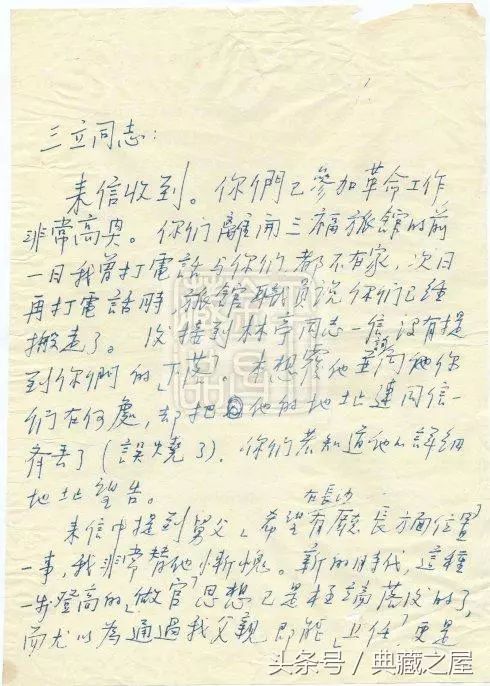 三立同志：
来信收到。你們已參加革命工作
非常高興。你们離開三福旅館的前
一日我曾打電話与你们，都不在家，次日
再打電話時，旅館職員说你们已经
搬走了。後接到林亭同志一信，没有提
到你們的「下落」。本想覆他並詢问他你
们在何處，却把他的地址連同信一
齊丢了（誤燒了）。你們若知道他的詳細
地址望告。
来信中提到舅父「希望在長沙有廳長方面位置」
一事，我非常替他慚愧。新的時代，這種
一步登高的「做官」思想已是極端落後的了，
而尤以為通過我父親即能「上任」更是
头条号／典藏之屋